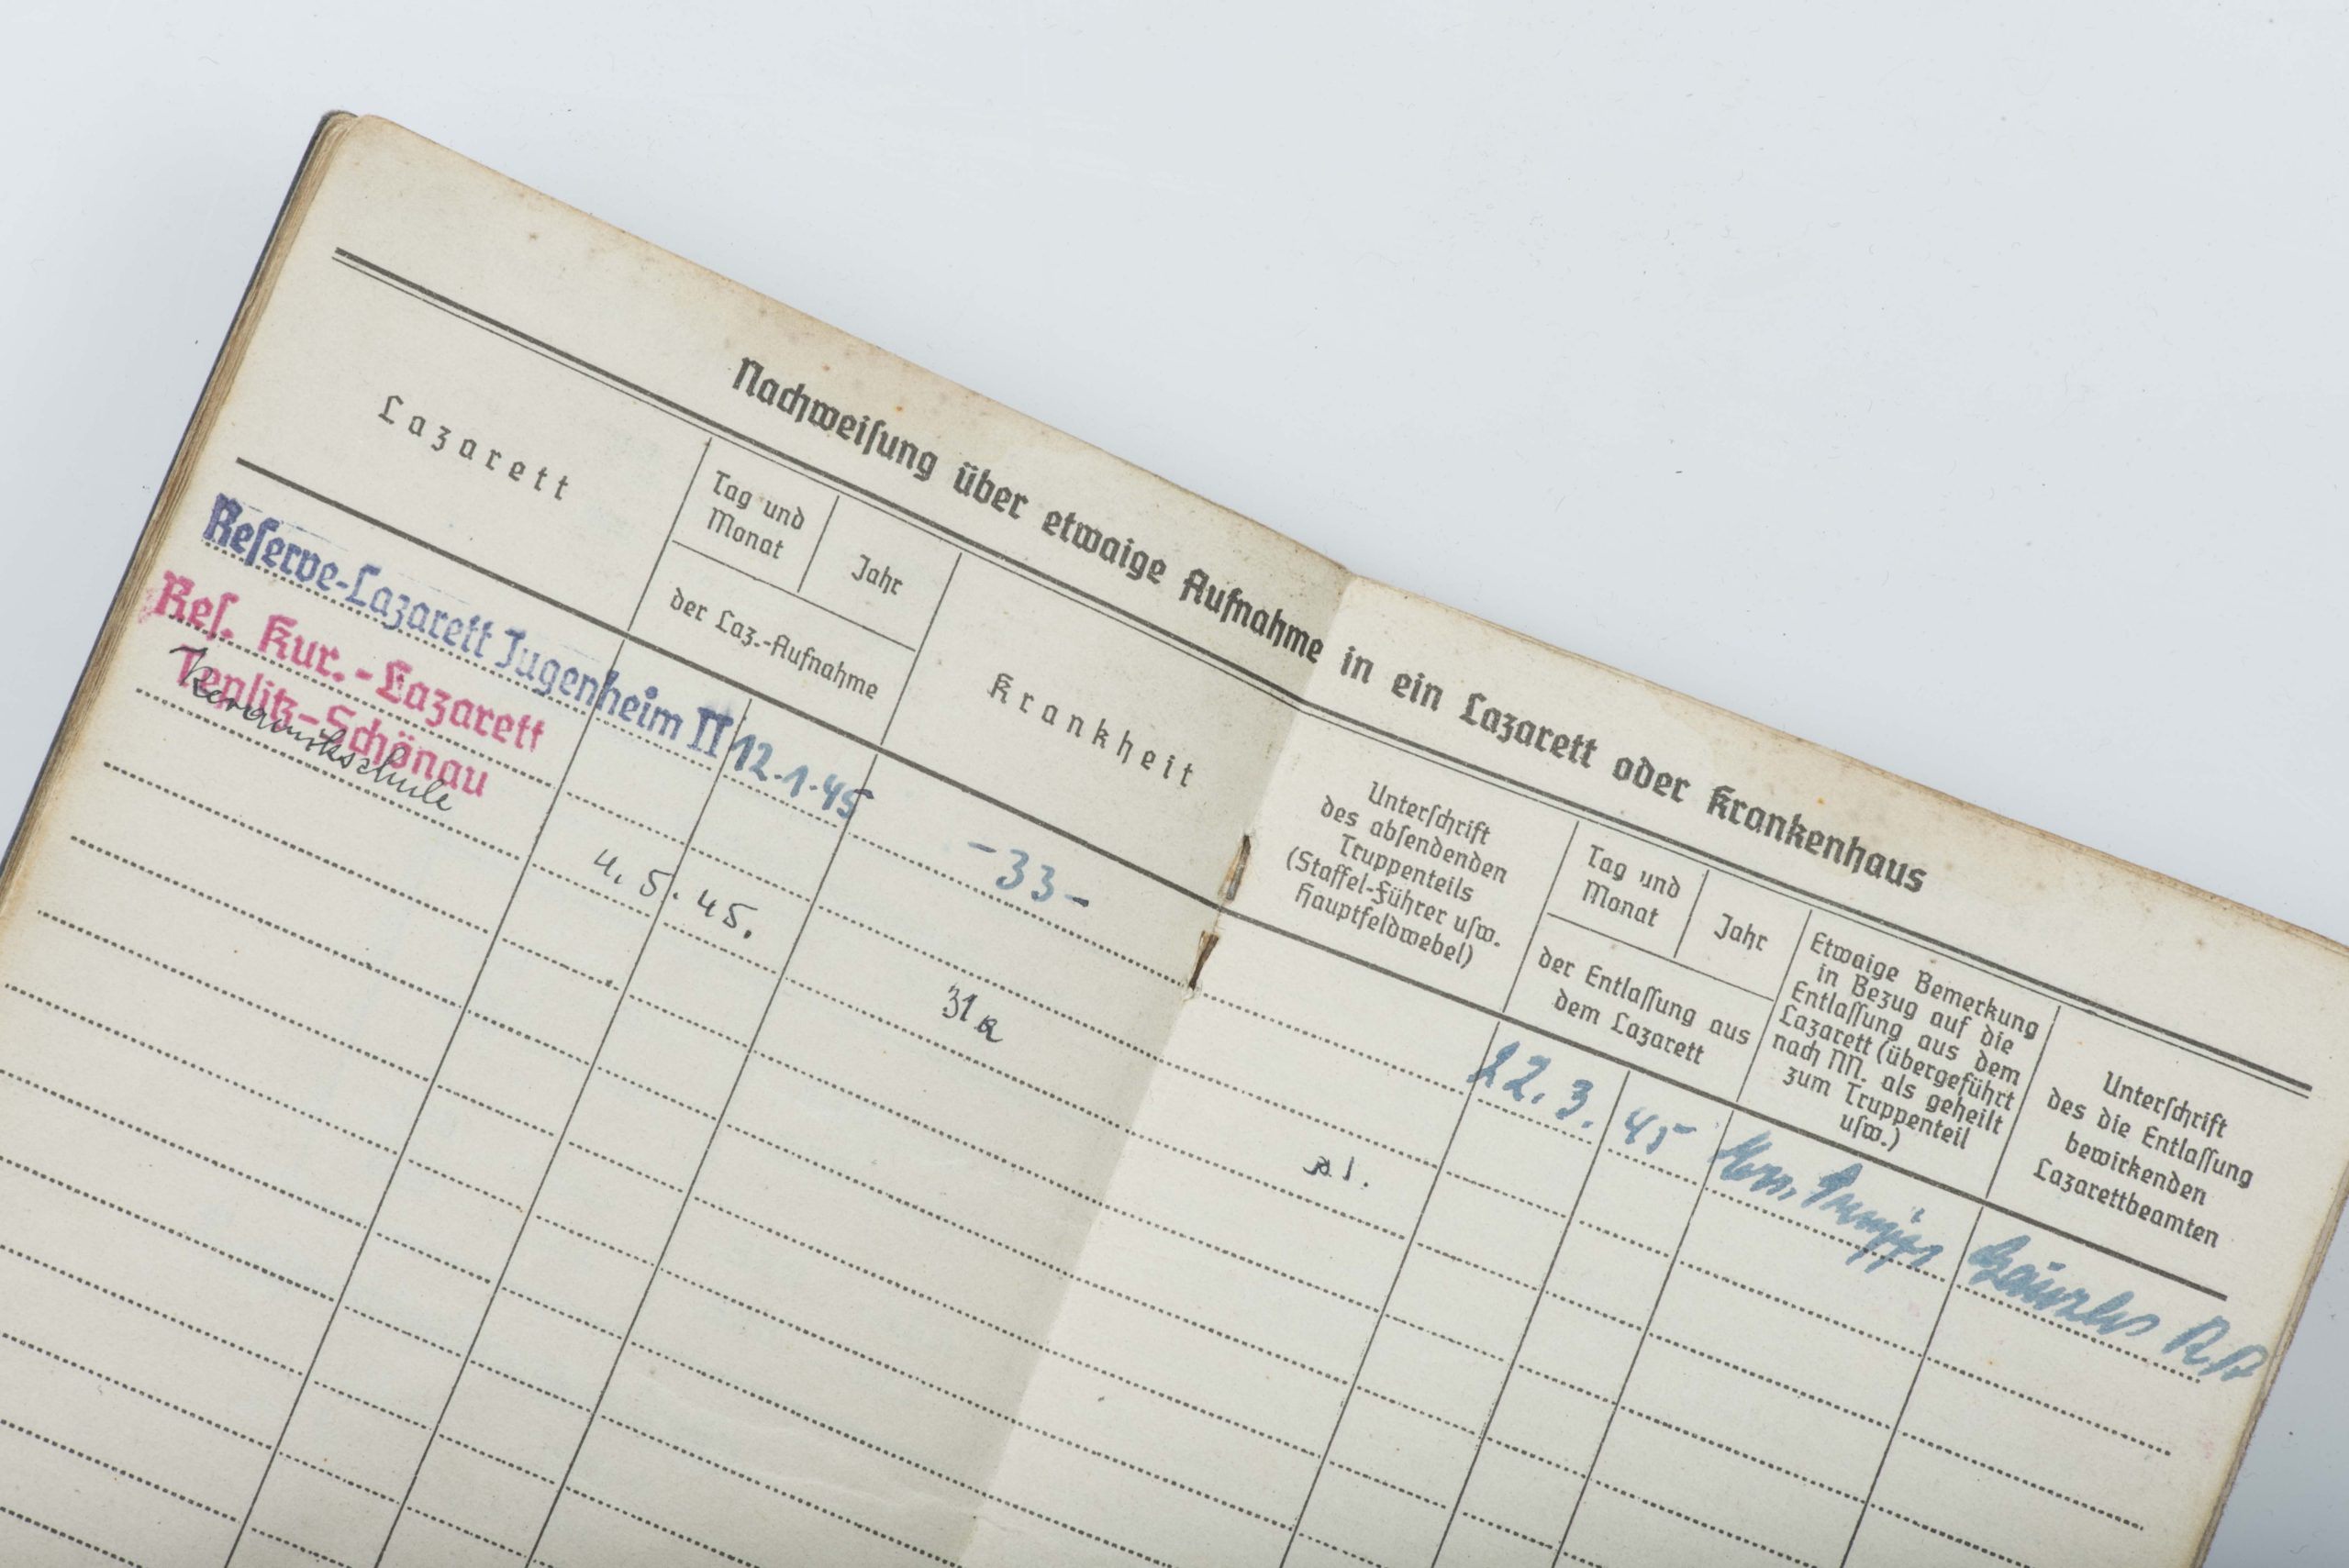 Nachweiſung über etwaige Aufnahme in ein Lazarett oder Krankenhaus
Lazarett
Tag und
Monat
Jahr
der Laz.-Aufnahme
Krankheit
Unterſchrift
des abſendenden
Truppenteils
(Staffel-Führer uſw.
Hauptfeldwebel)
Tag und
Monat
Jahr
der Entlaſſung aus
dem Lazarett
Etwaige Bemerkung
in Bezug auf die
Entlaſſung aus dem
Lazarett (übergeführt
nach NN. als geheilt
zum Truppenteil
uſw.)
Unterſchrift
des die Entlaſſung
bewirkenden
Lazarettbeamten
Reſerve-Lazarett Jugenheim II
12.1.45
-33-
22.3. 45
Reſ. Kur.-Lazarett
Teplitz-Schönau
4.5.45.
31a